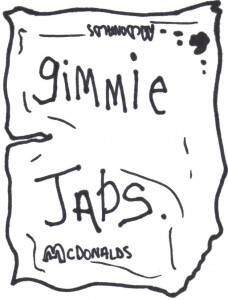 McDONALDS
gimmie
Jabs.
McDONALDS